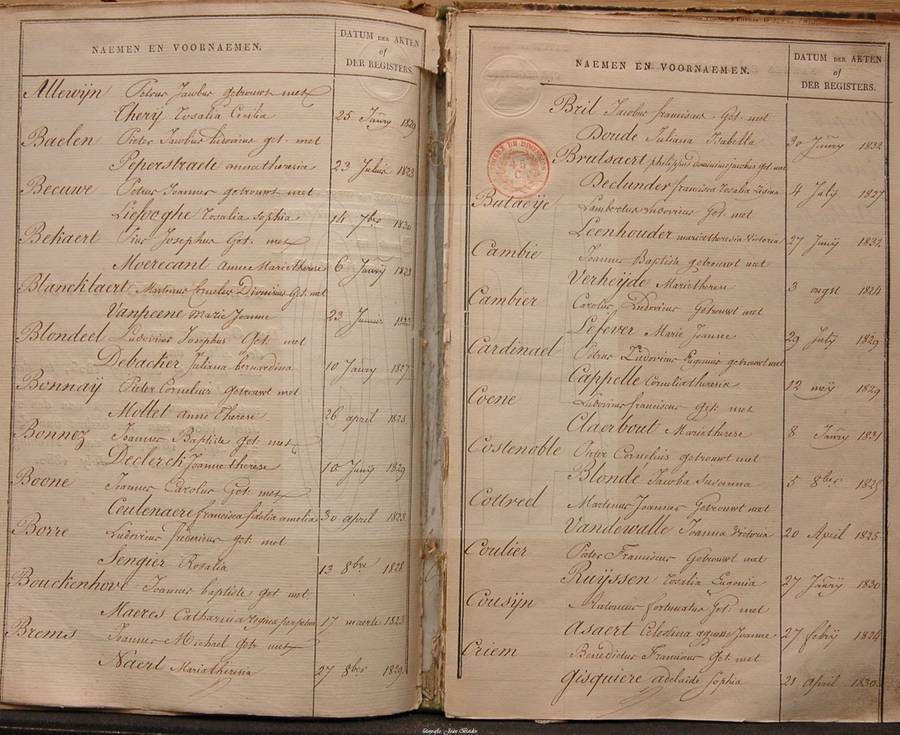 NAEMEN EN VOORNAEMEN.
DATUM DER AKTEN
of
DER REGISTERS.
Allewijn Petrus Jacobus getrouwt met
Therij Rosalia Cecilia 25 Janry 1829
Baelen Pieter Jacobus get. met
Peperstraete anna theresia 23 Julius 1823
Becuwe Petrus Joannes getrouwt met
Liefooghe Rosalia Sophia 14 7ber 1830
Bekaert Pius Josephus Get. met
Moerecant Anne Marie Therese 6 Janrij 1823
Blanckkaert Martinus Cornelius Get. met
Vanpeene Marie Joanne 23
Blondeel Ludovicus Josephus Get. met
Debacker Juliana bernardina 10 Janry 1827
Bonnaij Pieter Cornelius Getrouwt met
Mollet Anne Therese 26 april 1825
Bonnez Joannes Baptiste Get. met
Declerck Joanne therese 10 Junij 1829
Boone Joannes Carolus Get. met
Ceulenaere francisca fidelia amelia 30 april 1823
Borre Ludovicus fredericus get. met
Sengier Rosalia 13 8bre 1828
Bouckenhove Joannes baptiste Get met
Maeres Catharina Regina perpetua 17 maerte 1823
Brems Joannes Michael Getr. met
Naert Maria theresia 27 8ber 1829
NAEMEN EN VOORNAEMEN.
DATUM DER AKTEN
of
DER REGISTERS.
Bril Jacobus franciscus Get. met
Doude Juliana Isabella 30 Janry 1832
Brutsaert philippus Dominicus jacobus get. met
Declunder francisca Rosalia Regina 4 July 1827
Butaeije Lambertus Ludovicus Get. met
Leenhouder maria theresia Victoria 27 Junij 1832
Cambie Joannes Baptiste getrouwt met
Verheijde Marie therese 3 ougst 1824
Cambier Carolus Ludovicus Getrouwt met
Lefever Marie Joanne 29 July 1829
Cardinael Petrus Ludovicus Eugenius getrouwt met
Cappelle Cornelia theresia 12 meij 1829
Coene Ludovicus franciscus Get. met
Claerbout Marie therese 8 Janrij 1831
Costenoble Pieter Cornelius getrouwt met
Blonde Jacoba Susanna 5 8ber 1825
Cottreel Martinus Joannes Getrouwt met
Vandewalle Joanna Victoria 20 April 1825
Coulier Pieter Franciscus Getrouwt met
Ruijssen Rozalia Eugenia 27 Janrij 1830
Cousijn Antonius fortunatus Get. met
Asaert Celestina Joanna 27 febrij 1824
Criem Benedictus Franciscus Get. met
Gisquiere adelaide Sophia 21 April 1830